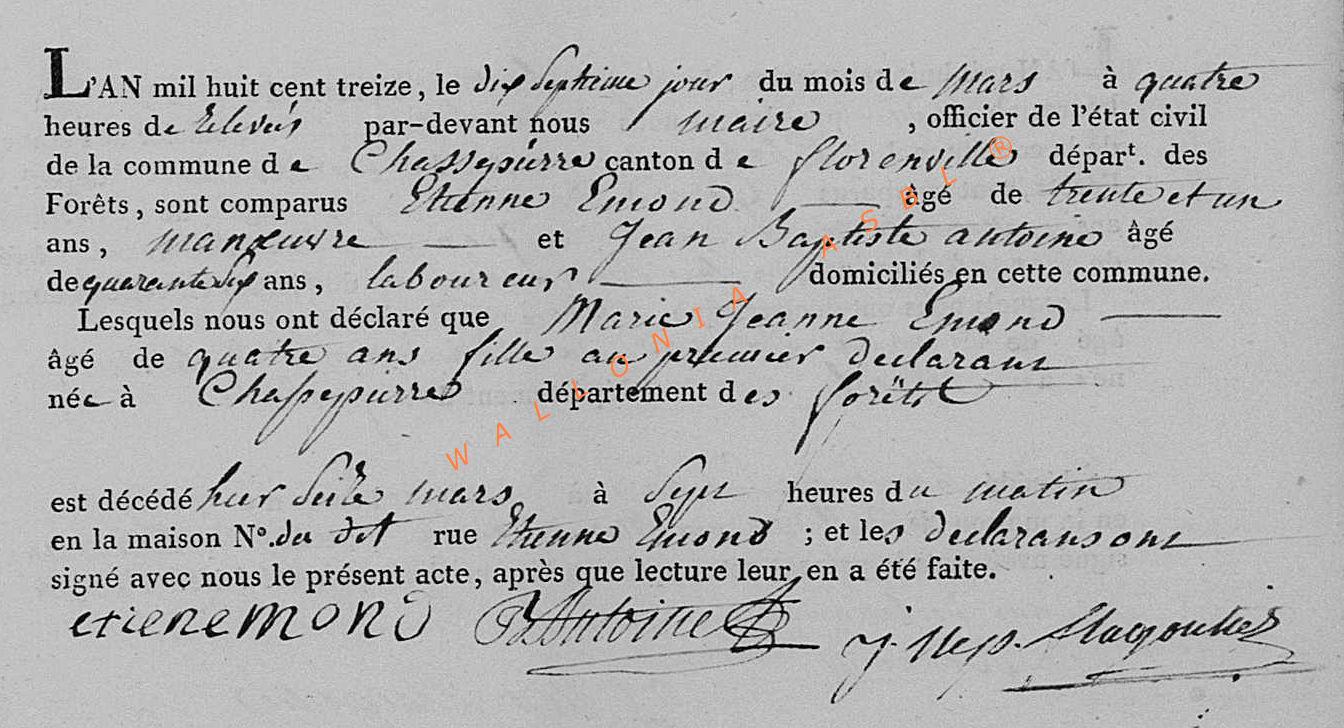 L'AN mil huit cent treize, le dix Septieme jour du mois de Mars à quatre
heures de Relevés par-devant nous maire, officier de l'état civil
de la commune de Chassepierre canton de florenvilleépart. des
Forêts, sont comparus Etienne Emond âgé de trente et un
ans, manœuvre et Jean Baptiste antoine âgé
de quarante six ans, laboureur domiciliés en cette commune.
Lesquels nous ont déclaré que Marie Jeanne Emond
âgé de quatre ans fille au premier declarant
née à Chassepierre département des forêts
est décédé hier Seize mars à Sept heures du matin
en la maison N°. du dit rue Etienne Emond ; et les declarans ont
signé avec nous le présent acte, après que lecture leur en a été faite.
etiene MOND Antoine J. Nep.
WALLONIA ASBL ®